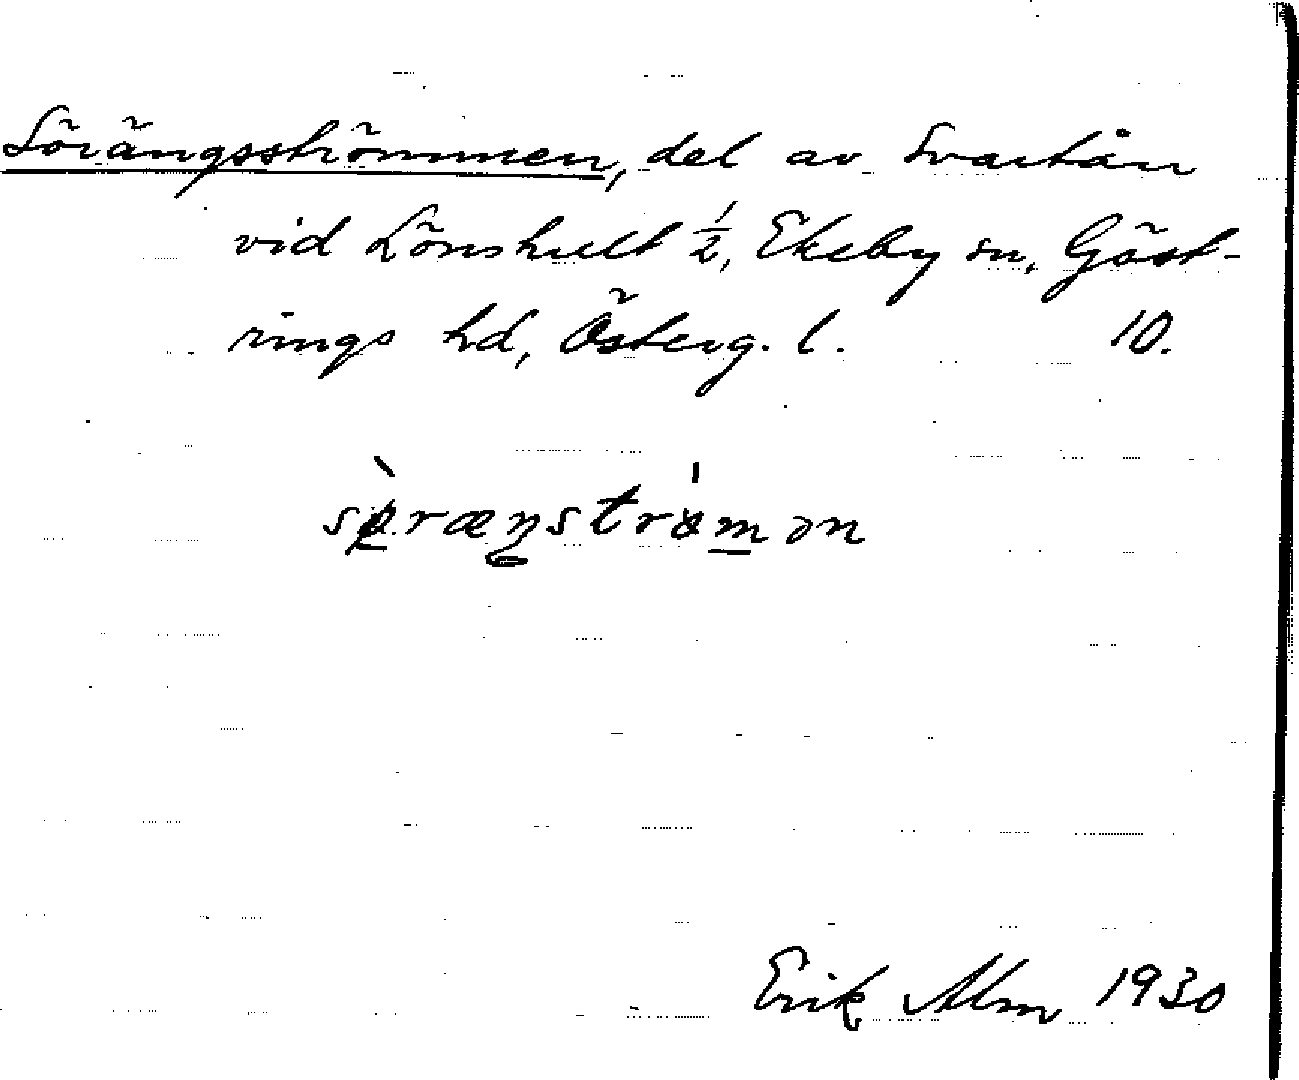 Sörängsströmmen, del av Svartån
vid Lönshult ½, Ekeby sn, Göst-
rings hd, Österg. l. 10.
Erik Alm 1930